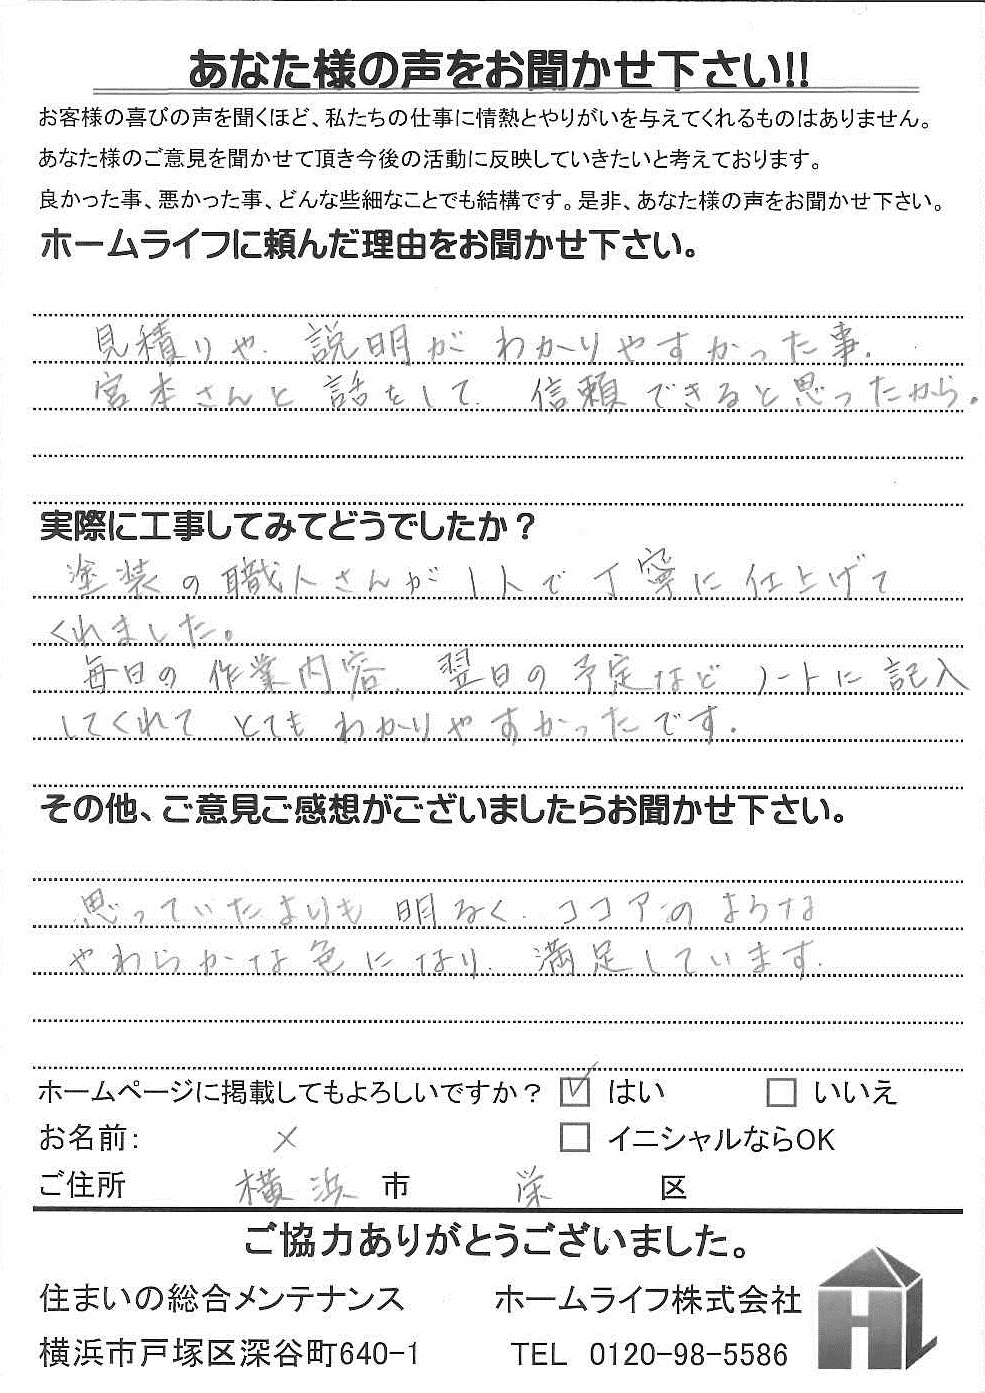 あなた様の声をお聞かせ下さい!!
お客様の喜びの声を聞くほど、私たちの仕事に情熱とやりがいを与えてくれるものはありません。
あなた様のご意見を聞かせて頂き今後の活動に反映していきたいと考えております。
良かった事、悪かった事、どんな些細なことでも結構です。是非、あなた様の声をお聞かせ下さい。
ホームライフに頼んだ理由をお聞かせ下さい。
見積りや、説明がわかりやすかった事。
宮本さんと話をして、信頼できると思ったから。
実際に工事してみてどうでしたか？
塗装の職人さんが1人で丁寧に仕上げて
くれました。
毎日の作業内容、翌日の予定などノートに記入
してくれてとてもわかりやすかったです。
その他、ご意見ご感想がございましたらお聞かせ下さい。
思っていたよりも明るく、ココアのような
やわらかな色になり、満足しています。
ホームページに掲載してもよろしいですか？ ☑ はい □ いいえ
お名前: × □ イニシャルならOK
ご住所 横浜 市 栄 区
ご協力ありがとうございました。
住まいの総合メンテナンス ホームライフ株式会社
横浜市戸塚区深谷町640-1 TEL 0120-98-5586
HL